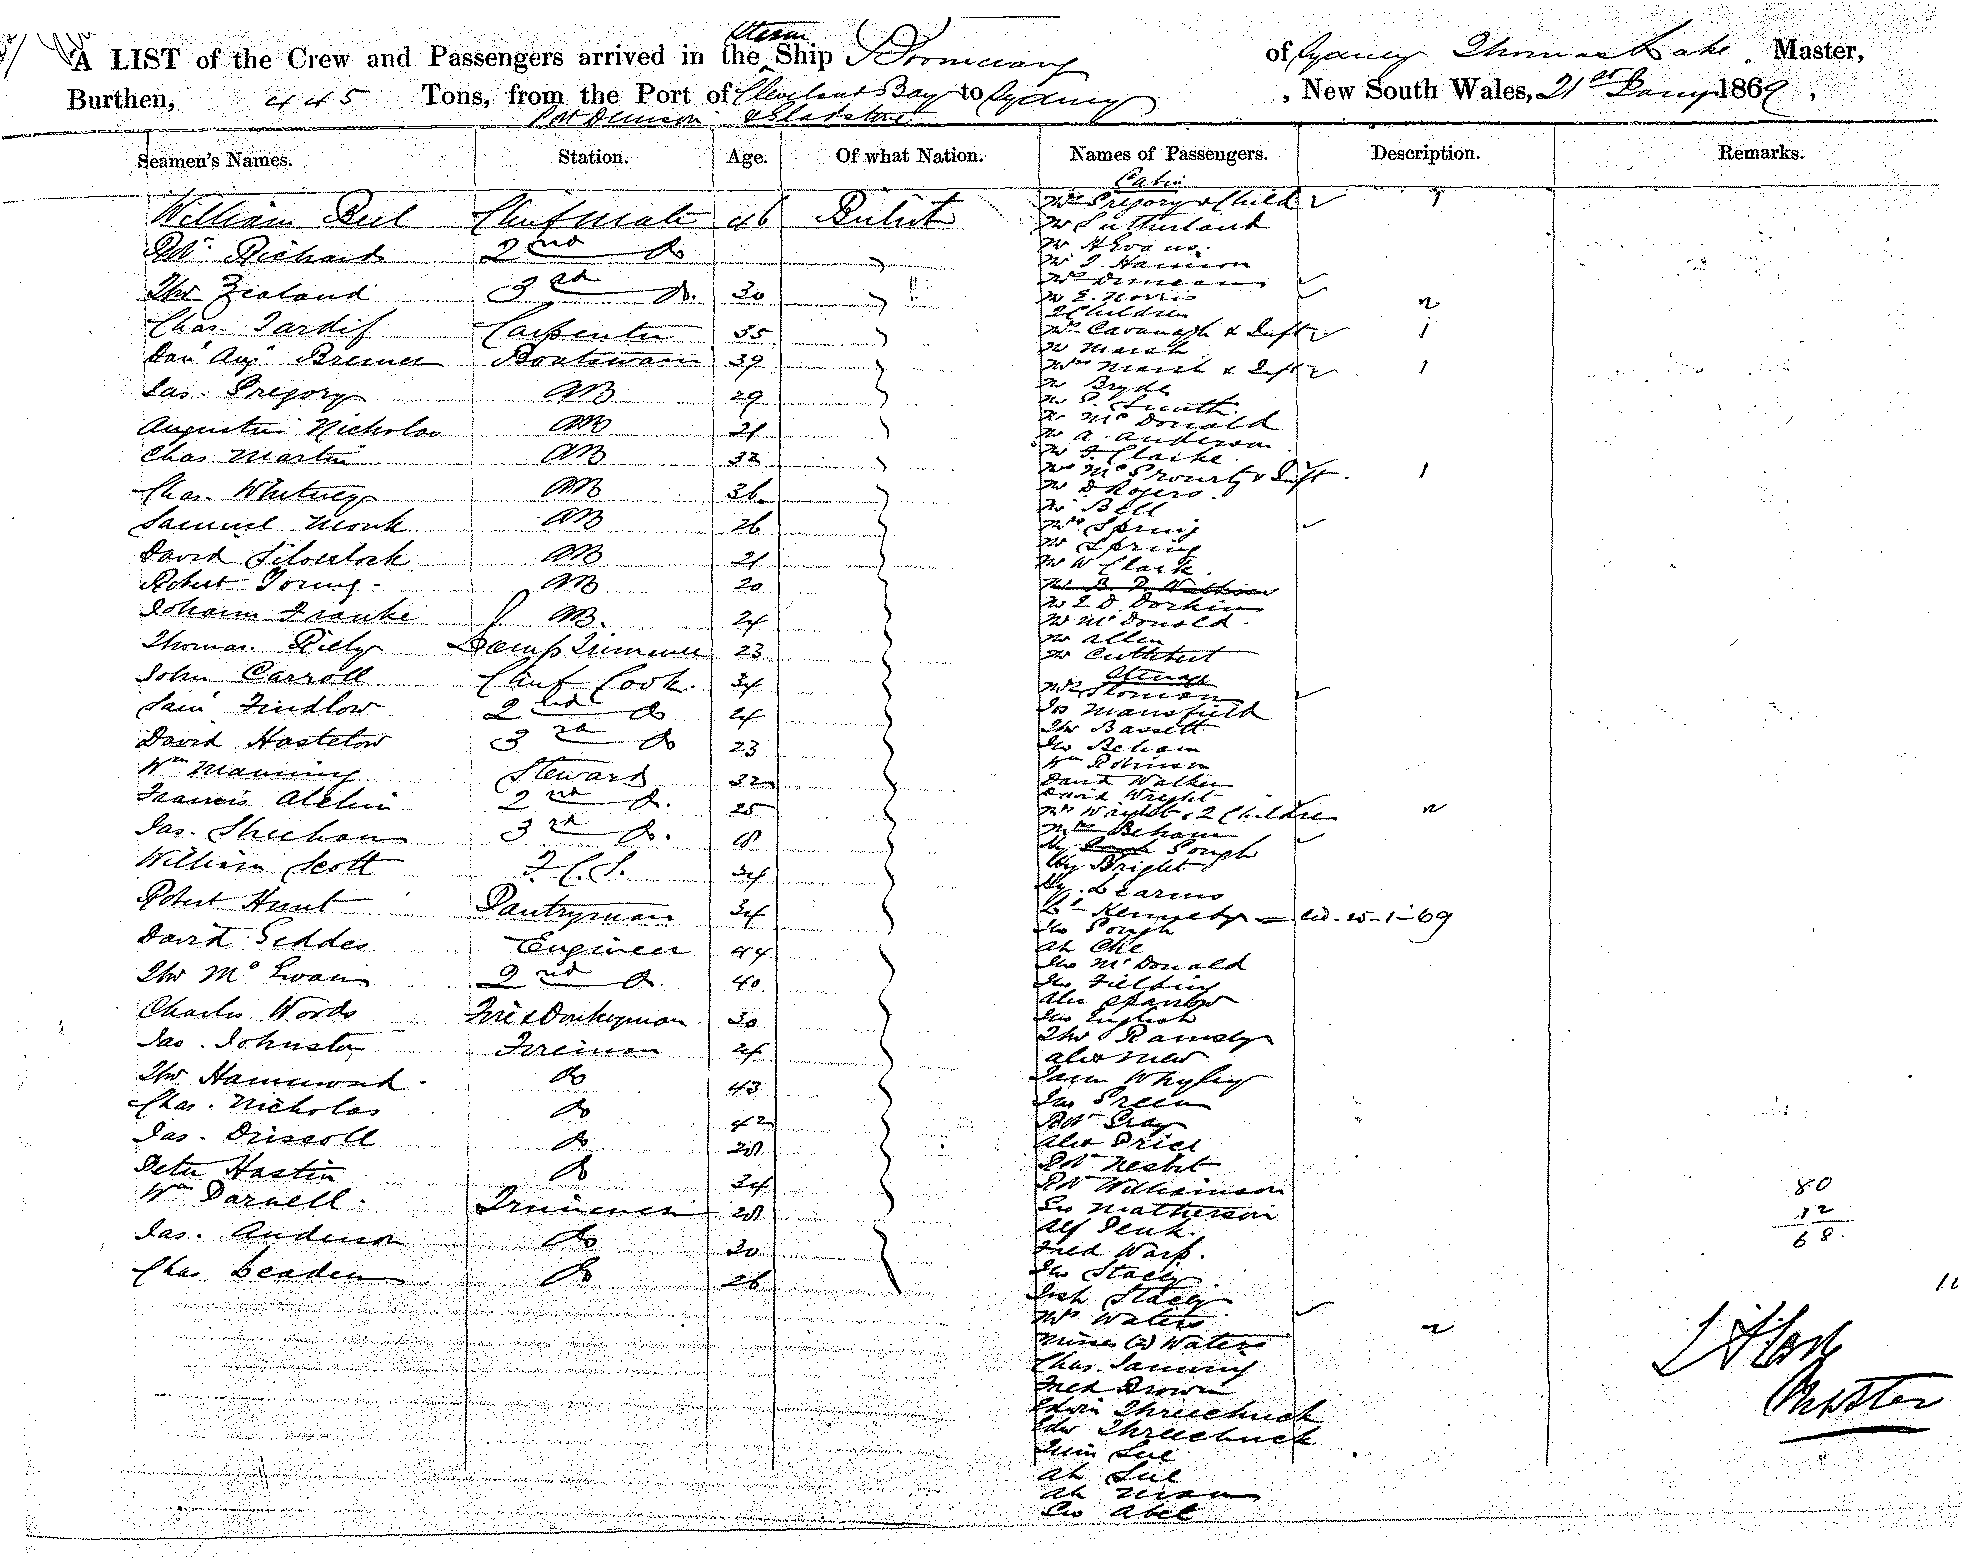 Steam
A LIST of the Crew and Passengers arrived in the Ship Boomerang of Sydney Thomas Lake, Master,
Burthen, 445 Tons, from the Port of Cleveland Bay to Sydney, New South Wales, 21st Jany 1869,
Port Denison & Gladstone
Seamen's Names. Station. Age. Of what Nation. Names of Passengers. Description. Remarks.
William Bell Chief Mate 46 British
Robt Richard 2nd Do
Thos Zealand 3rd Do. 30
Chas Tardif Carpenter 35
Danl Augs Bremer Boatswain 39
Jas. Gregory AB 29
Augustus Nicholas AB 21
Chas Martin AB 32
Chas. Whitney AB 36
Samuel Monk AB 26
David Silverlock AB 21
Robert Young AB 20
Johann Franke AB. 24
Thomas Riely Lamp Trimmer 23
John Carroll Chief Cook 34
Saml Findlow 2nd Do 24
David Hastelow 3rd Do 23
Wm Manning Steward 32
Francis 2nd Do. 25
Jas. Sheehan 3rd Do. 18
William Scott F.C.S. 34
Robert Hunt Pantryman 34
David Geddes Engineer 44
Thos McEwan 2nd Do. 40
Charles Woods Fire & Donkeyman 30
Jas. Johnston Fireman 24
Thos Hammond Do 43
Chas. Nicholas Do 42
Jas. Driscoll Do 28
Peter Hastin Do 34
Wm Darnell Trimmer 28
Jas. Anderson Do 30
Chas Leaden Do 26
Cabin
Mrs Gregory & Child 1
Mr Sutherland
Mr H Evans
Mr J Harrison
Mrs Duncan
Mr E. Norris
2 Children 2
Mrs Cavanagh & Inft 1
Mr Marsh
Mrs Marsh & Inft 1
Mr Bryde
Mr P. Smith
Mr McDonald
Mr A. Anderson
Mr J. Clarke
Mrs McGrourty & Inft. 1
Mr D Rogers
Mr Bell
Mrs Spring
Mr Spring
Mr W Clark
Mr B. D Watkins
Mr E D. Dorkin
Mr McDonald
Mr Allen
Mr Cuthbert
Steerage
Mrs Sloman
Jno Mansfield
Thos Bassett
Jno Beham
Wm Robinson
David Walker
David Wright
Mrs Wright & 2 Children 2
Mrs Beham
Hy Gough
Hy Bright
Hy. Learms
Kennedy 25-1-69
Jno Gough
Ah Che
Jno McDonald
Jno Fielding
Alex
Jno English
Thos Ramsay
Alex Mew
Saml Whyley
Jno Green
Robt Gray
Alex Price
Robt Nesbit
Robt Williamson
Geo Matherson
Alf Penk
Fred Warp.
Jno Stacey
Stacey
Mrs Waters
Misses (2) Waters 2
Chas. Tanning
Fred Brown
Edwin Threechuck
Edw Threechuck
Sue
Ah Sue
Ah Man
Geo Abel
80
12
68
12
Master